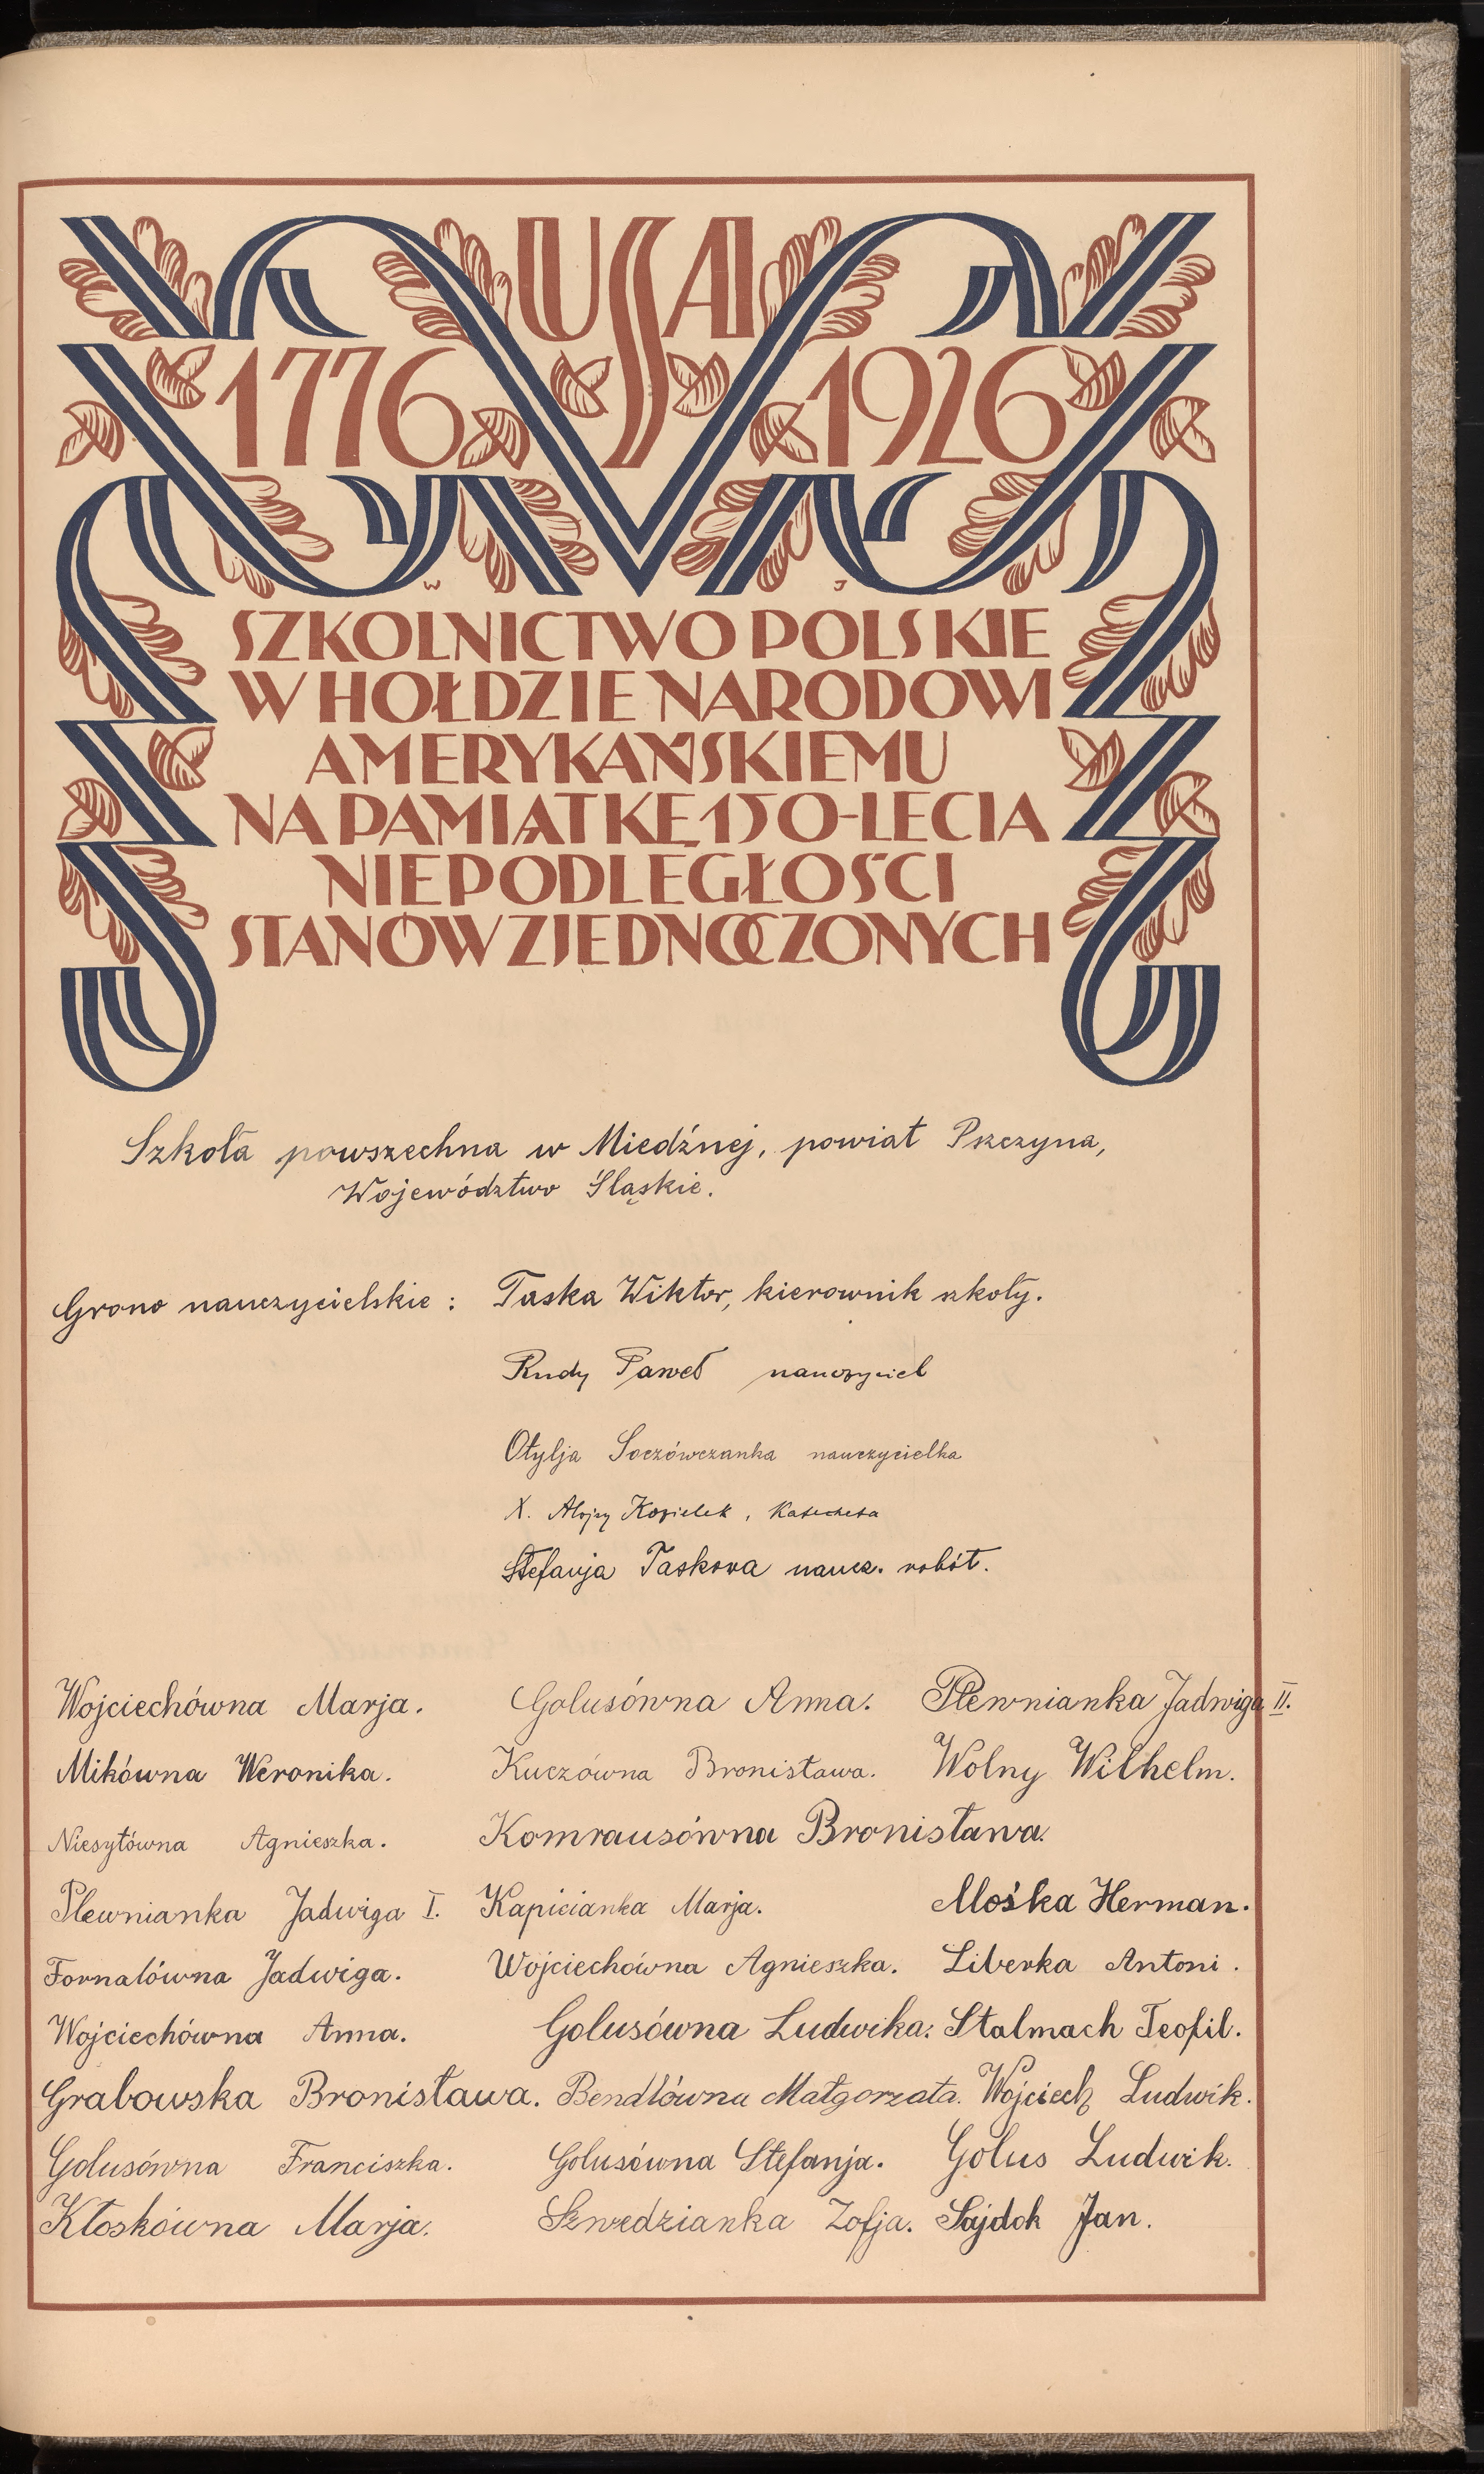 USA
1776 1926
W J
SZKOLNICTWO POLSKIE
W HOŁDZIE NARODOWI
AMERYKAŃSKIEMU
NA PAMIĄTKĘ 150-LECIA
NIEPODLEGŁOŚCI
STANÓW ZJEDNOCZONYCH
Szkoła powszechna w Miedźnej, powiat Pszczyna,
Województwo Śląskie.
Grono nauczycielskie : Taska Wiktor, kierownik szkoły.
Rudy Paweł nauczyciel
Otylja Soczówczanka nauczycielka
X. Alojzy Kozielek, Katecheta
Stefanja Taskowa naucz. robót.
Wojciechówna Marja. Golusówna Anna. Plewnianka Jadwiga II.
Mikówna Weronika. Kuczówna Bronisława. Wolny Wilhelm.
Niesytówna Agnieszka. Komrausówna Bronisława.
Plewnianka Jadwiga I. Kapicianka Marja. Mośka Herman.
Fornalówna Jadwiga. Wojciechówna Agnieszka. Liberka Antoni.
Wojciechówna Anna. Golusówna Ludwika. Stalmach Teofil.
Grabowska Bronisława. Bendlówna Małgorzata. Wojciech Ludwik.
Golusówna Franciszka. Golusówna Stefanja. Golus Ludwik.
Kłoskówna Marja. Szwedzianka Zofja. Sajdok Jan.